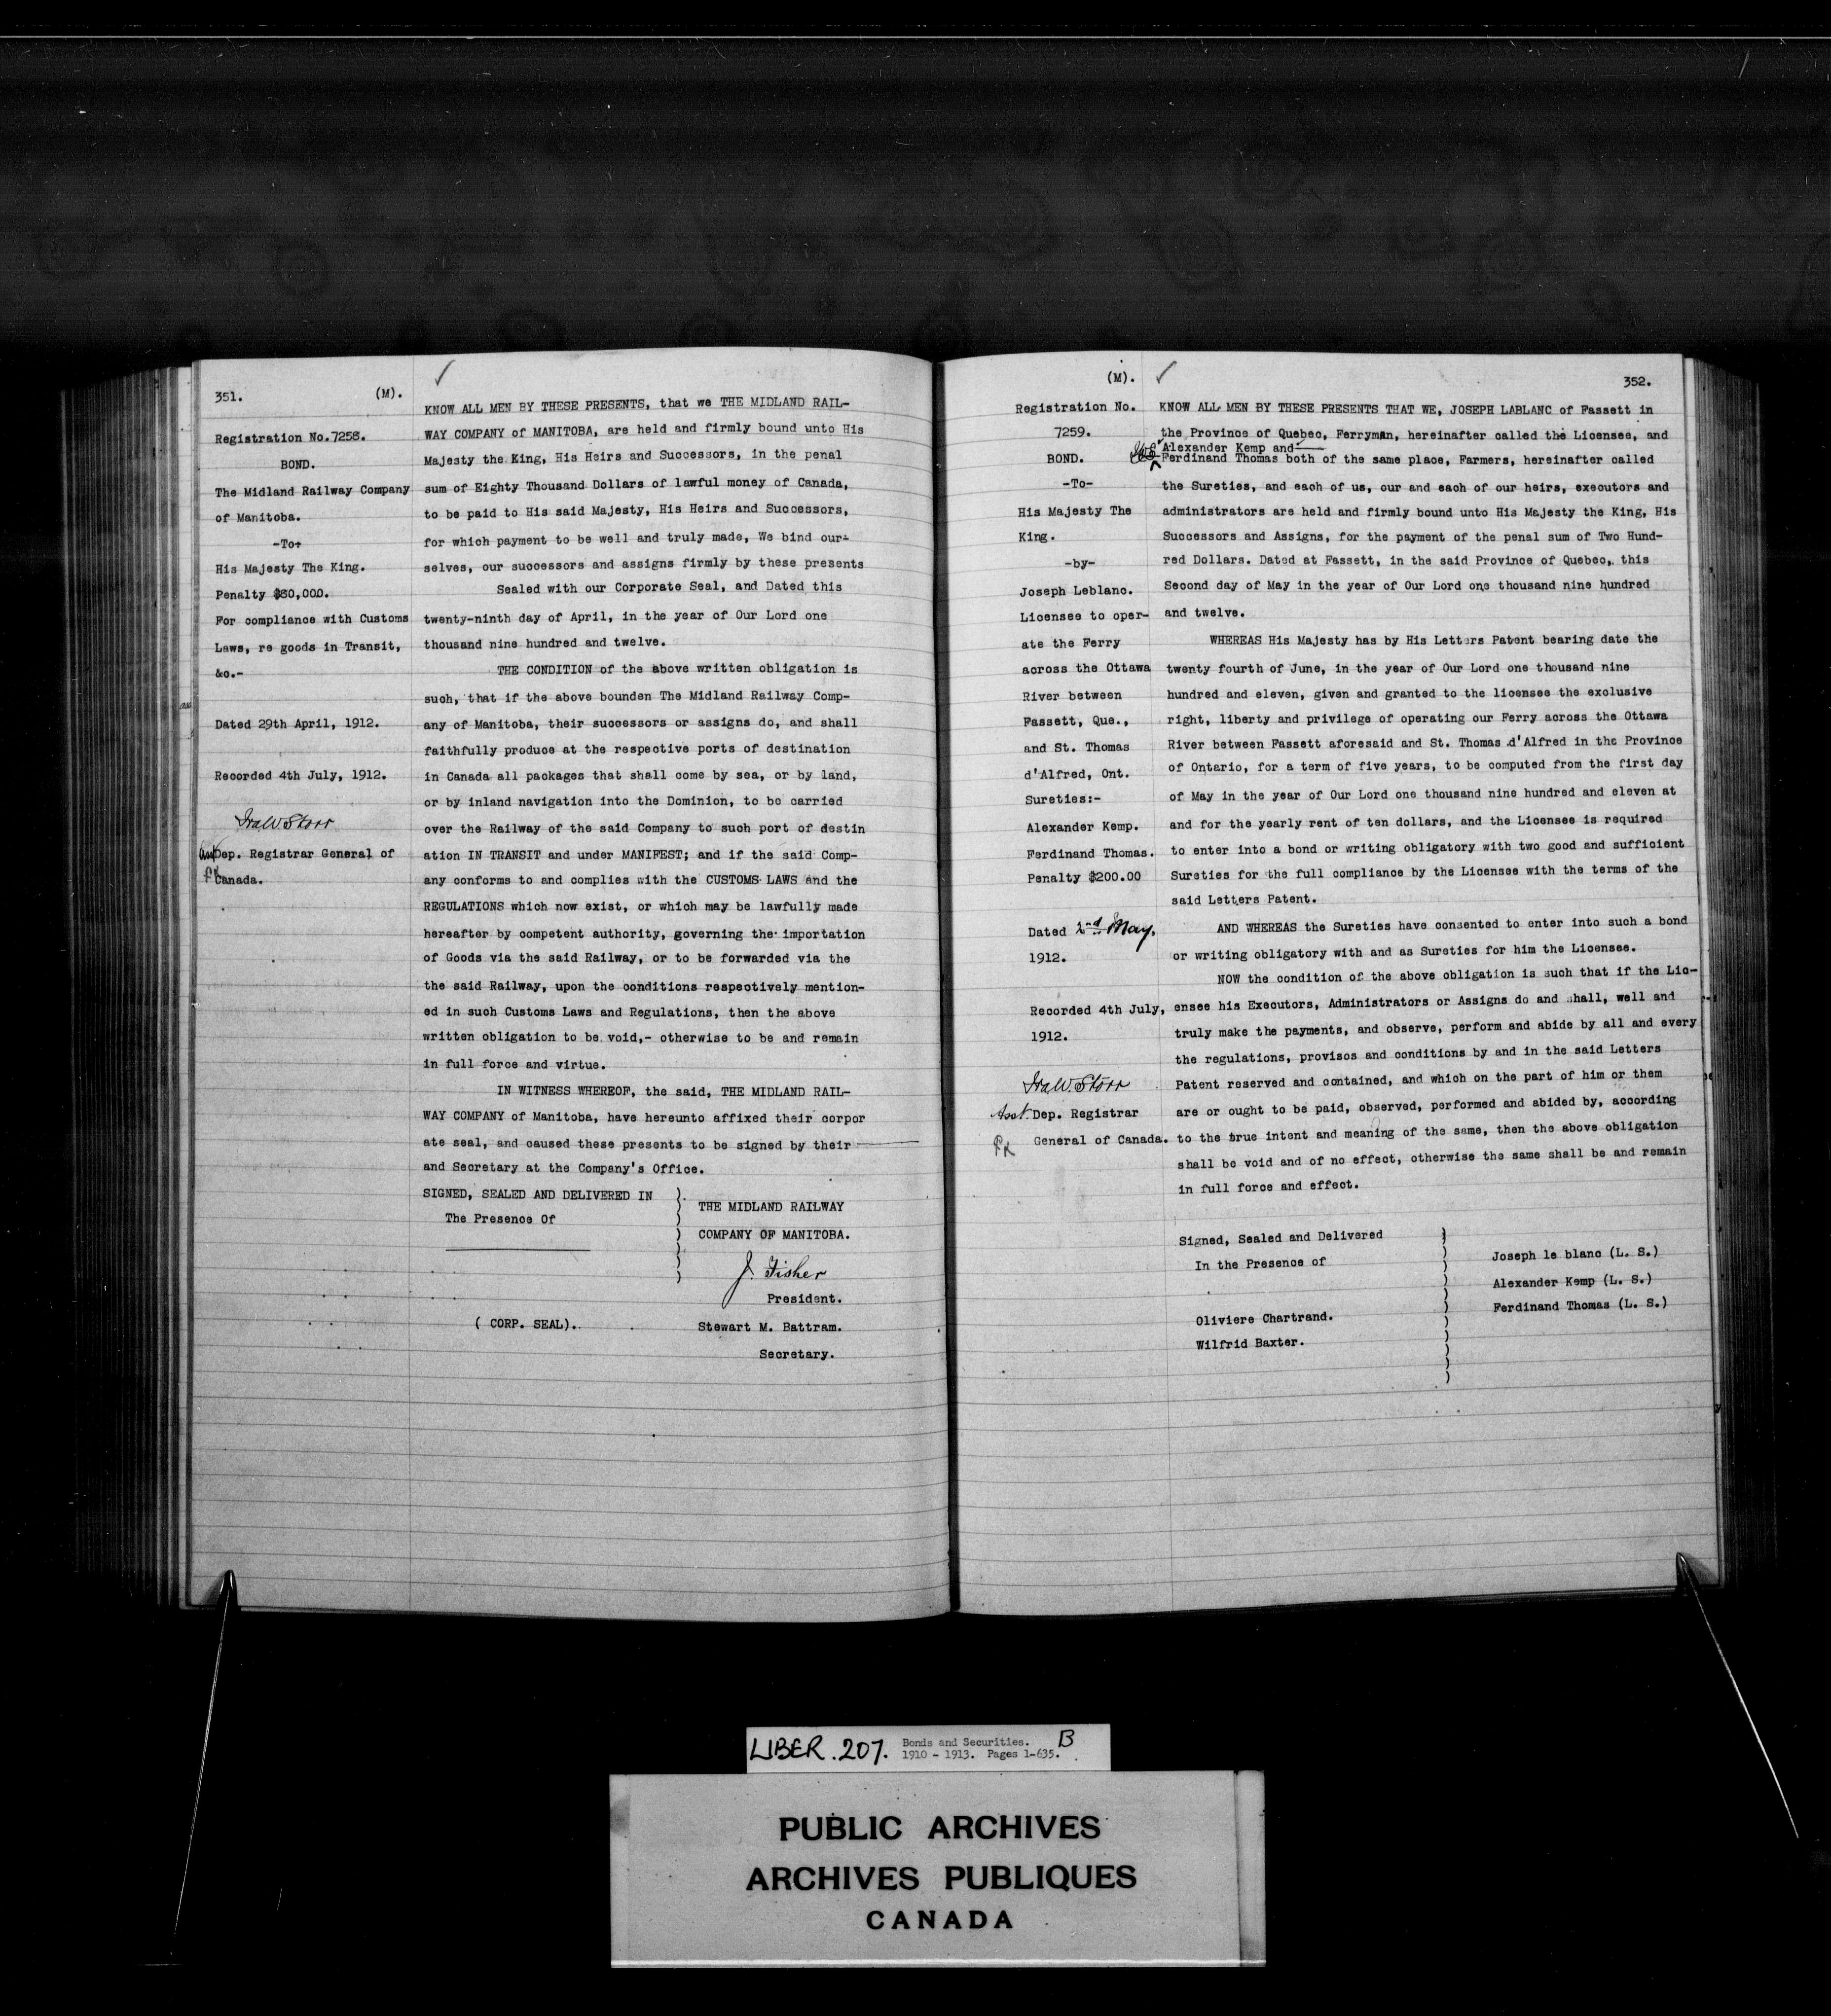 351.
(M).
Registration No.7258.
BOND.
The Midland Railway Company
of Manitoba.
-To-
His Majesty The King.
Penalty $80,000.
For compliance with Customs
Laws, re goods in Transit,
&c.-
Dated 29th April, 1912.
Recorded 4th July, 1912.
Ira W Storr
Dep. Registrar General of
Canada.
KNOW ALL MEN BY THESE PRESENTS, that we THE MIDLAND RAIL-
WAY COMPANY of MANITOBA, are held and firmly bound unto His
Majesty the King, His Heirs and Successors, in the penal
sum of Eighty Thousand Dollars of lawful money of Canada,
to be paid to His said Majesty, His Heirs and Successors,
for which payment to be well and truly made, We bind our-
selves, our successors and assigns firmly by these presents
Sealed with our Corporate Seal, and Dated this
twenty-ninth day of April, in the year of Our Lord one
thousand nine hundred and twelve.
THE CONDITION of the above written obligation is
such, that if the above bounden The Midland Railway Comp-
any of Manitoba, their successors or assigns do, and shall
faithfully produce at the respective ports of destination
in Canada all packages that shall come by sea, or by land,
or by inland navigation into the Dominion, to be carried
over the Railway of the said Company to such port of destin
ation IN TRANSIT and under MANIFEST; and if the said Comp-
any conforms to and complies with the CUSTOMS LAWS and the
REGULATIONS which now exist, or which may be lawfully made
hereafter by competent authority, governing the importation
of Goods via the said Railway, or to be forwarded via the
the said Railway, upon the conditions respectively mention-
ed in such Customs Laws and Regulations, then the above
written obligation to be void,- otherwise to be and remain
in full force and virtue.
IN WITNESS WHEREOF, the said, THE MIDLAND RAIL-
WAY COMPANY of Manitoba, have hereunto affixed their corpor
ate seal, and caused these presents to be signed by their
and Secretary at the Company's Office.
SIGNED, SEALED AND DELIVERED IN
The Presence Of
THE MIDLAND RAILWAY
COMPANY OF MANITOBA.
J. Fisher
President.
( CORP. SEAL).
Stewart M. Battram.
Secretary.
(M).
352.
Registration No.
7259.
BOND.
-To-
His Majesty The
King.
-by-
Joseph Leblanc.
Licensee to oper-
ate the Ferry
across the Ottawa
River between
Fassett, Que.,
and St. Thomas
d'Alfred, Ont.
Sureties:-
Alexander Kemp.
Ferdinand Thomas.
Penalty $200.00
Dated 2nd May,
1912.
Recorded 4th July,
1912.
Ira W. Storr
Asst. Dep. Registrar
General of Canada.
KNOW ALL MEN BY THESE PRESENTS THAT WE, JOSEPH LABLANC of Fassett in
the Province of Quebec, Ferryman, hereinafter called the Licensee, and
Alexander Kemp and
Ferdinand Thomas both of the same place, Farmers, hereinafter called
the Sureties, and each of us, our and each of our heirs, executors and
administrators are held and firmly bound unto His Majesty the King, His
Successors and Assigns, for the payment of the penal sum of Two Hund-
red Dollars. Dated at Fassett, in the said Province of Quebec, this
Second day of May in the year of Our Lord one thousand nine hundred
and twelve.
WHEREAS His Majesty has by His Letters Patent bearing date the
twenty fourth of June, in the year of Our Lord one thousand nine
hundred and eleven, given and granted to the licensee the exclusive
right, liberty and privilege of operating our Ferry across the Ottawa
River between Fassett aforesaid and St. Thomas d'Alfred in the Province
of Ontario, for a term of five years, to be computed from the first day
of May in the year of Our Lord one thousand nine hundred and eleven at
and for the yearly rent of ten dollars, and the Licensee is required
to enter into a bond or writing obligatory with two good and sufficient
Sureties for the full compliance by the Licensee with the terms of the
said Letters Patent.
AND WHEREAS the Sureties have consented to enter into such a bond
or writing obligatory with and as Sureties for him the Licensee.
NOW the condition of the above obligation is such that if the Lic-
ensee his Executors, Administrators or Assigns do and shall, well and
truly make the payments, and observe, perform and abide by all and every
the regulations, provisos and conditions by and in the said Letters
Patent reserved and contained, and which on the part of him or them
are or ought to be paid, observed, performed and abided by, according
to the true intent and meaning of the same, then the above obligation
shall be void and of no effect, otherwise the same shall be and remain
in full force and effect.
Signed, Sealed and Delivered
In the Presence of
Oliviere Chartrand.
Wilfrid Baxter.
Joseph le blanc (L. S.)
Alexander Kemp (L. S.)
Ferdinand Thomas (L. S.)
LIBER. 207.
Bonds and Securities.
1910 - 1913. Pages 1-635.
B
PUBLIC ARCHIVES
ARCHIVES PUBLIQUES
CANADA